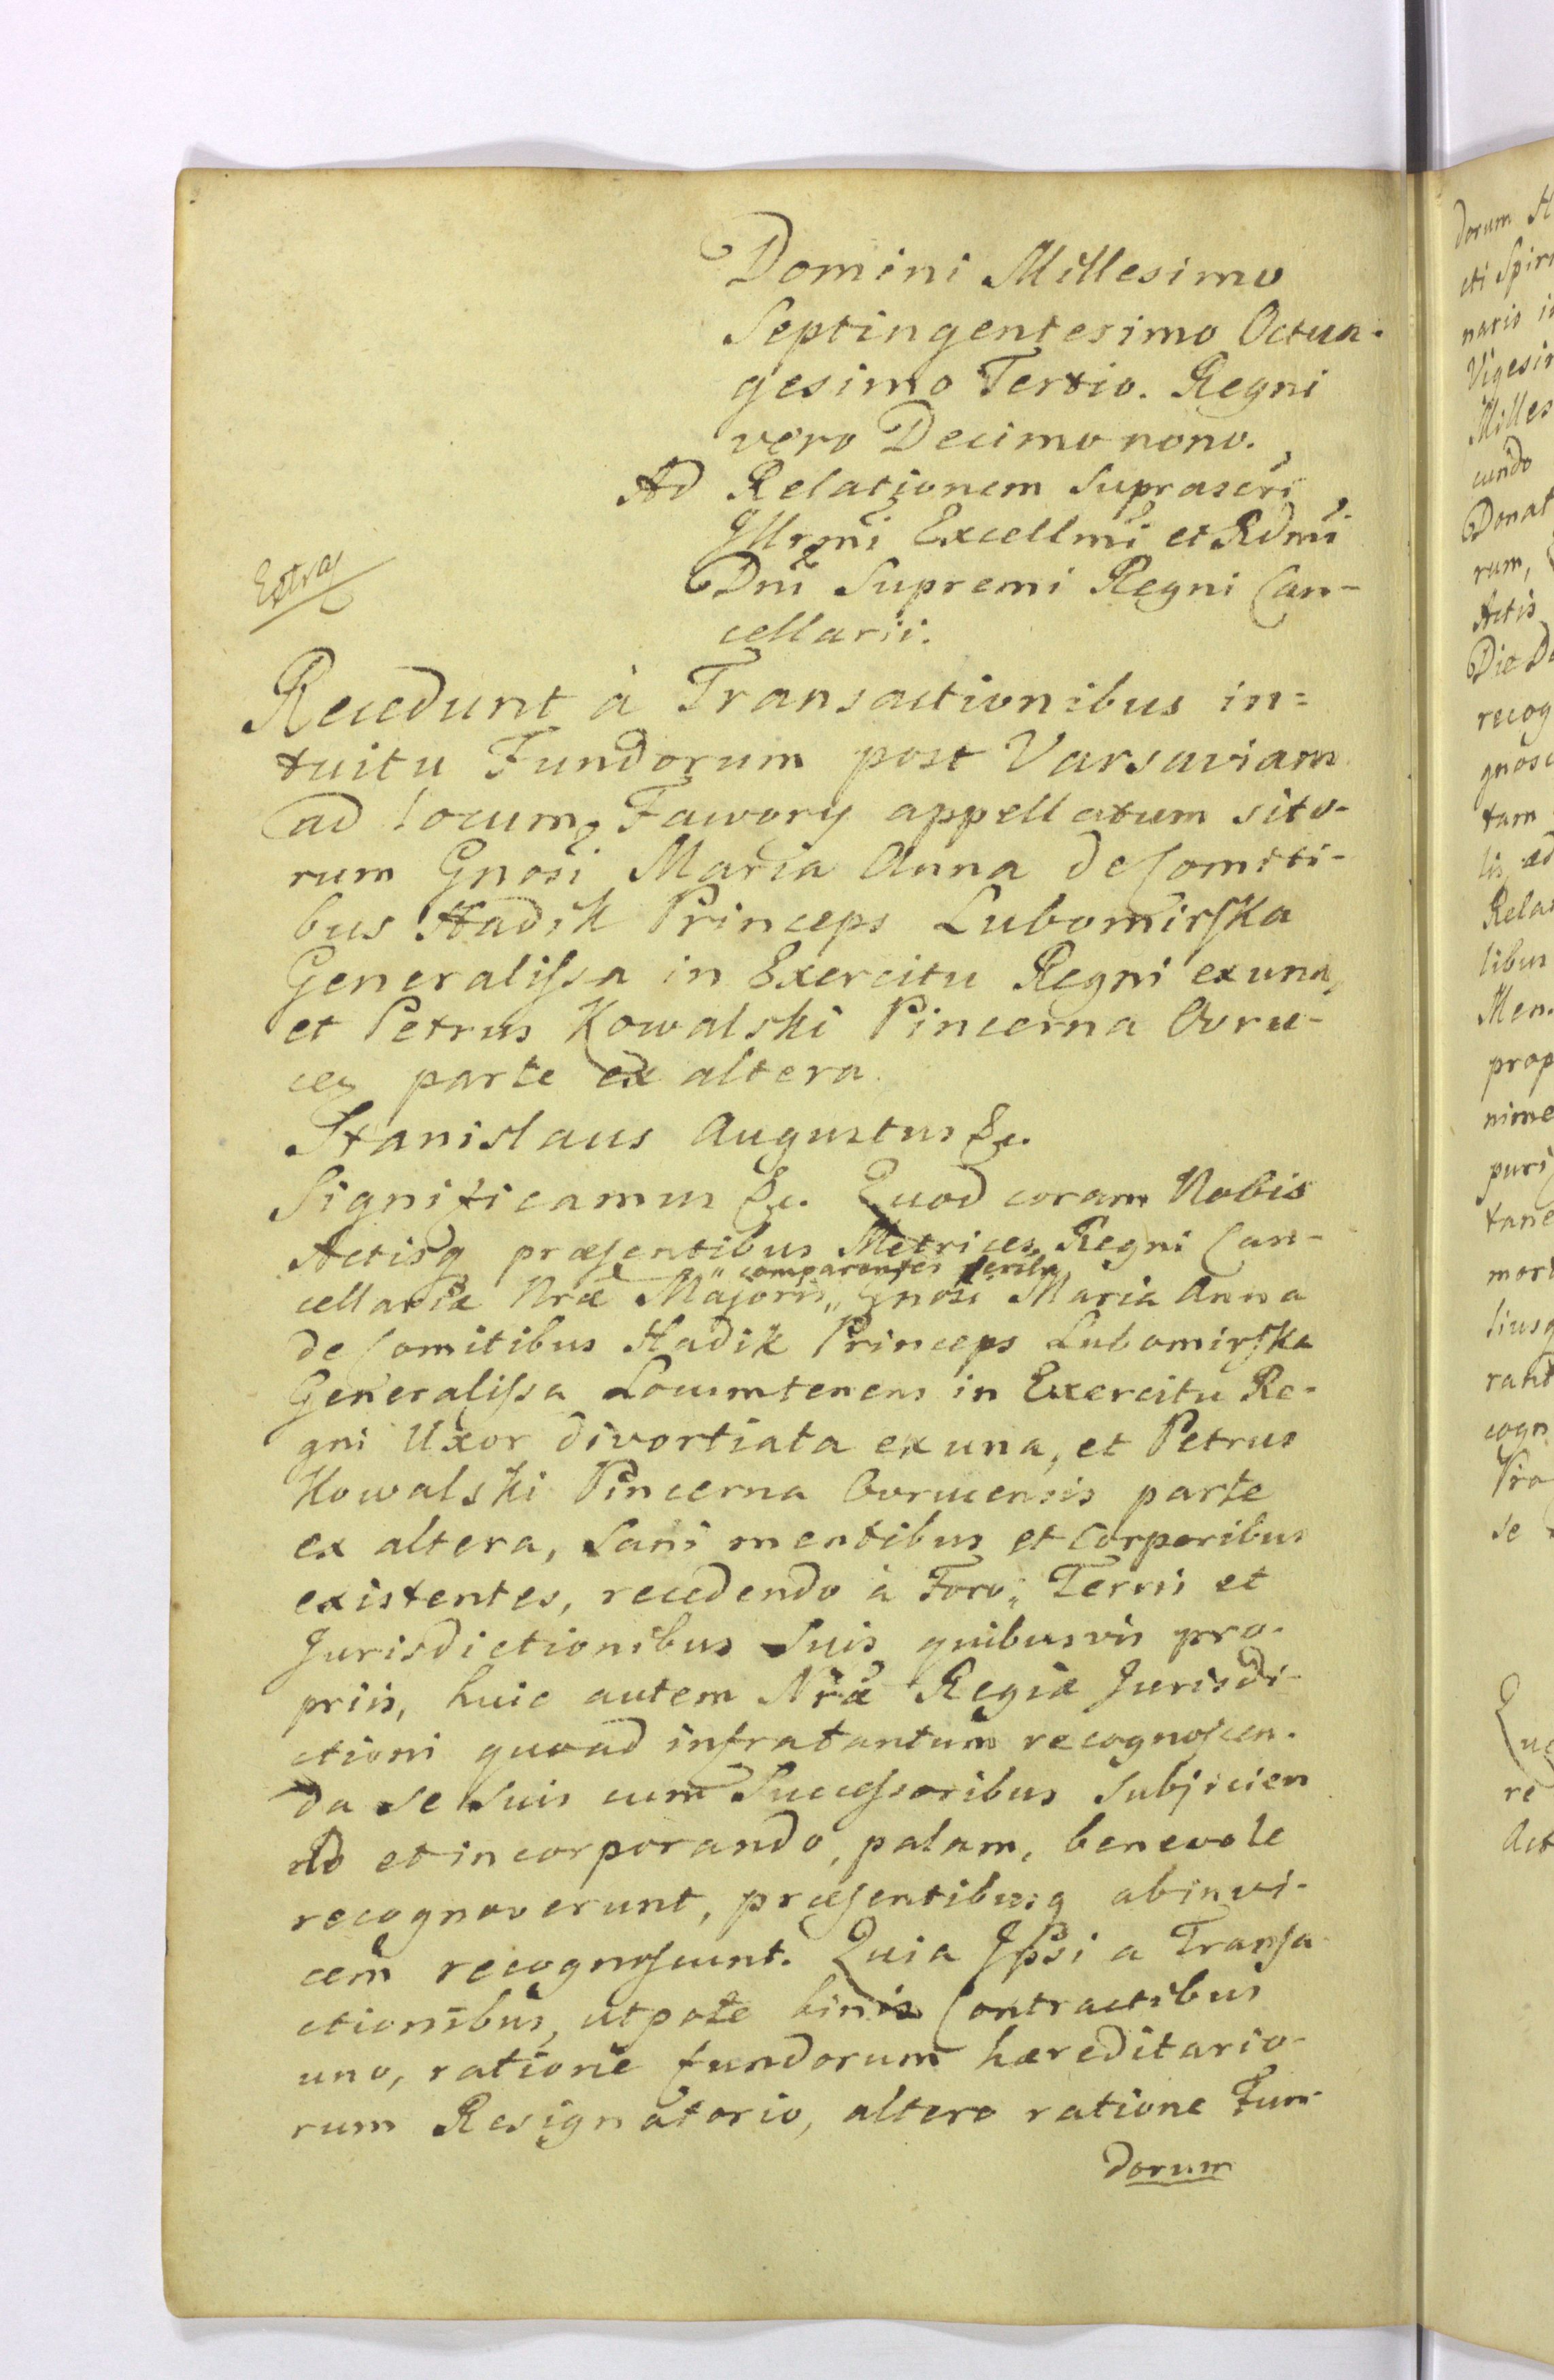 Domini Millesimo
Septingentesimo Octua-
gesimo Tertio. Regni
vero Decimo nono.
Ad Relationem Suprascri
Illrmi Excellmi et Rdmi
Dni Supremi Regni Can-
cellarii.
Extra
Recedunt à Transactionibus in=
tuitu Fundorum post Varsaviam
ad locum Fawory appellatum sito-
rum Gnosi Maria Anna de Comiti-
bus Hadik Princeps Lubomirska
Generalissa in Exercitu Regni ex una,
et Petrus Kowalski Pincerna Ovru-
cen parte ex altera.
Stanislaus Augustus &c.
Significamus &c. Quod coram Nobis
Actisq præsentibus Metrices Regni Can-
" comparentes perslr
cellariæ Nræ Majoris " Gnosi Maria Anna
de Comitibus Hadik Princeps Lubomirska
Generalissa Locumtenens in Exercitu Re-
gni Uxor divortiata ex una, et Petrus
Kowalski Pincerna Ovrucensis parte
ex altera, Sani mentibus et Corporibus
existentes, recedendo à Foro, Terris et
Jurisdictionibus Suis quibusvis pro-
priis, huic autem Nræ Regiæ Jurisdi-
ctioni quoad infratantum recognoscen-
da se Suis cum Successoribus Subjicien
do et incorporando, palam, benevole
recognoverunt, præsentibusq abinvi-
cem recognoscunt. Quia Ipsi a Transa
ctionibus, utpote binis Contractibus
uno, ratione fundorum hæreditario-
rum Resignatorio, altero ratione Fun-
dorum